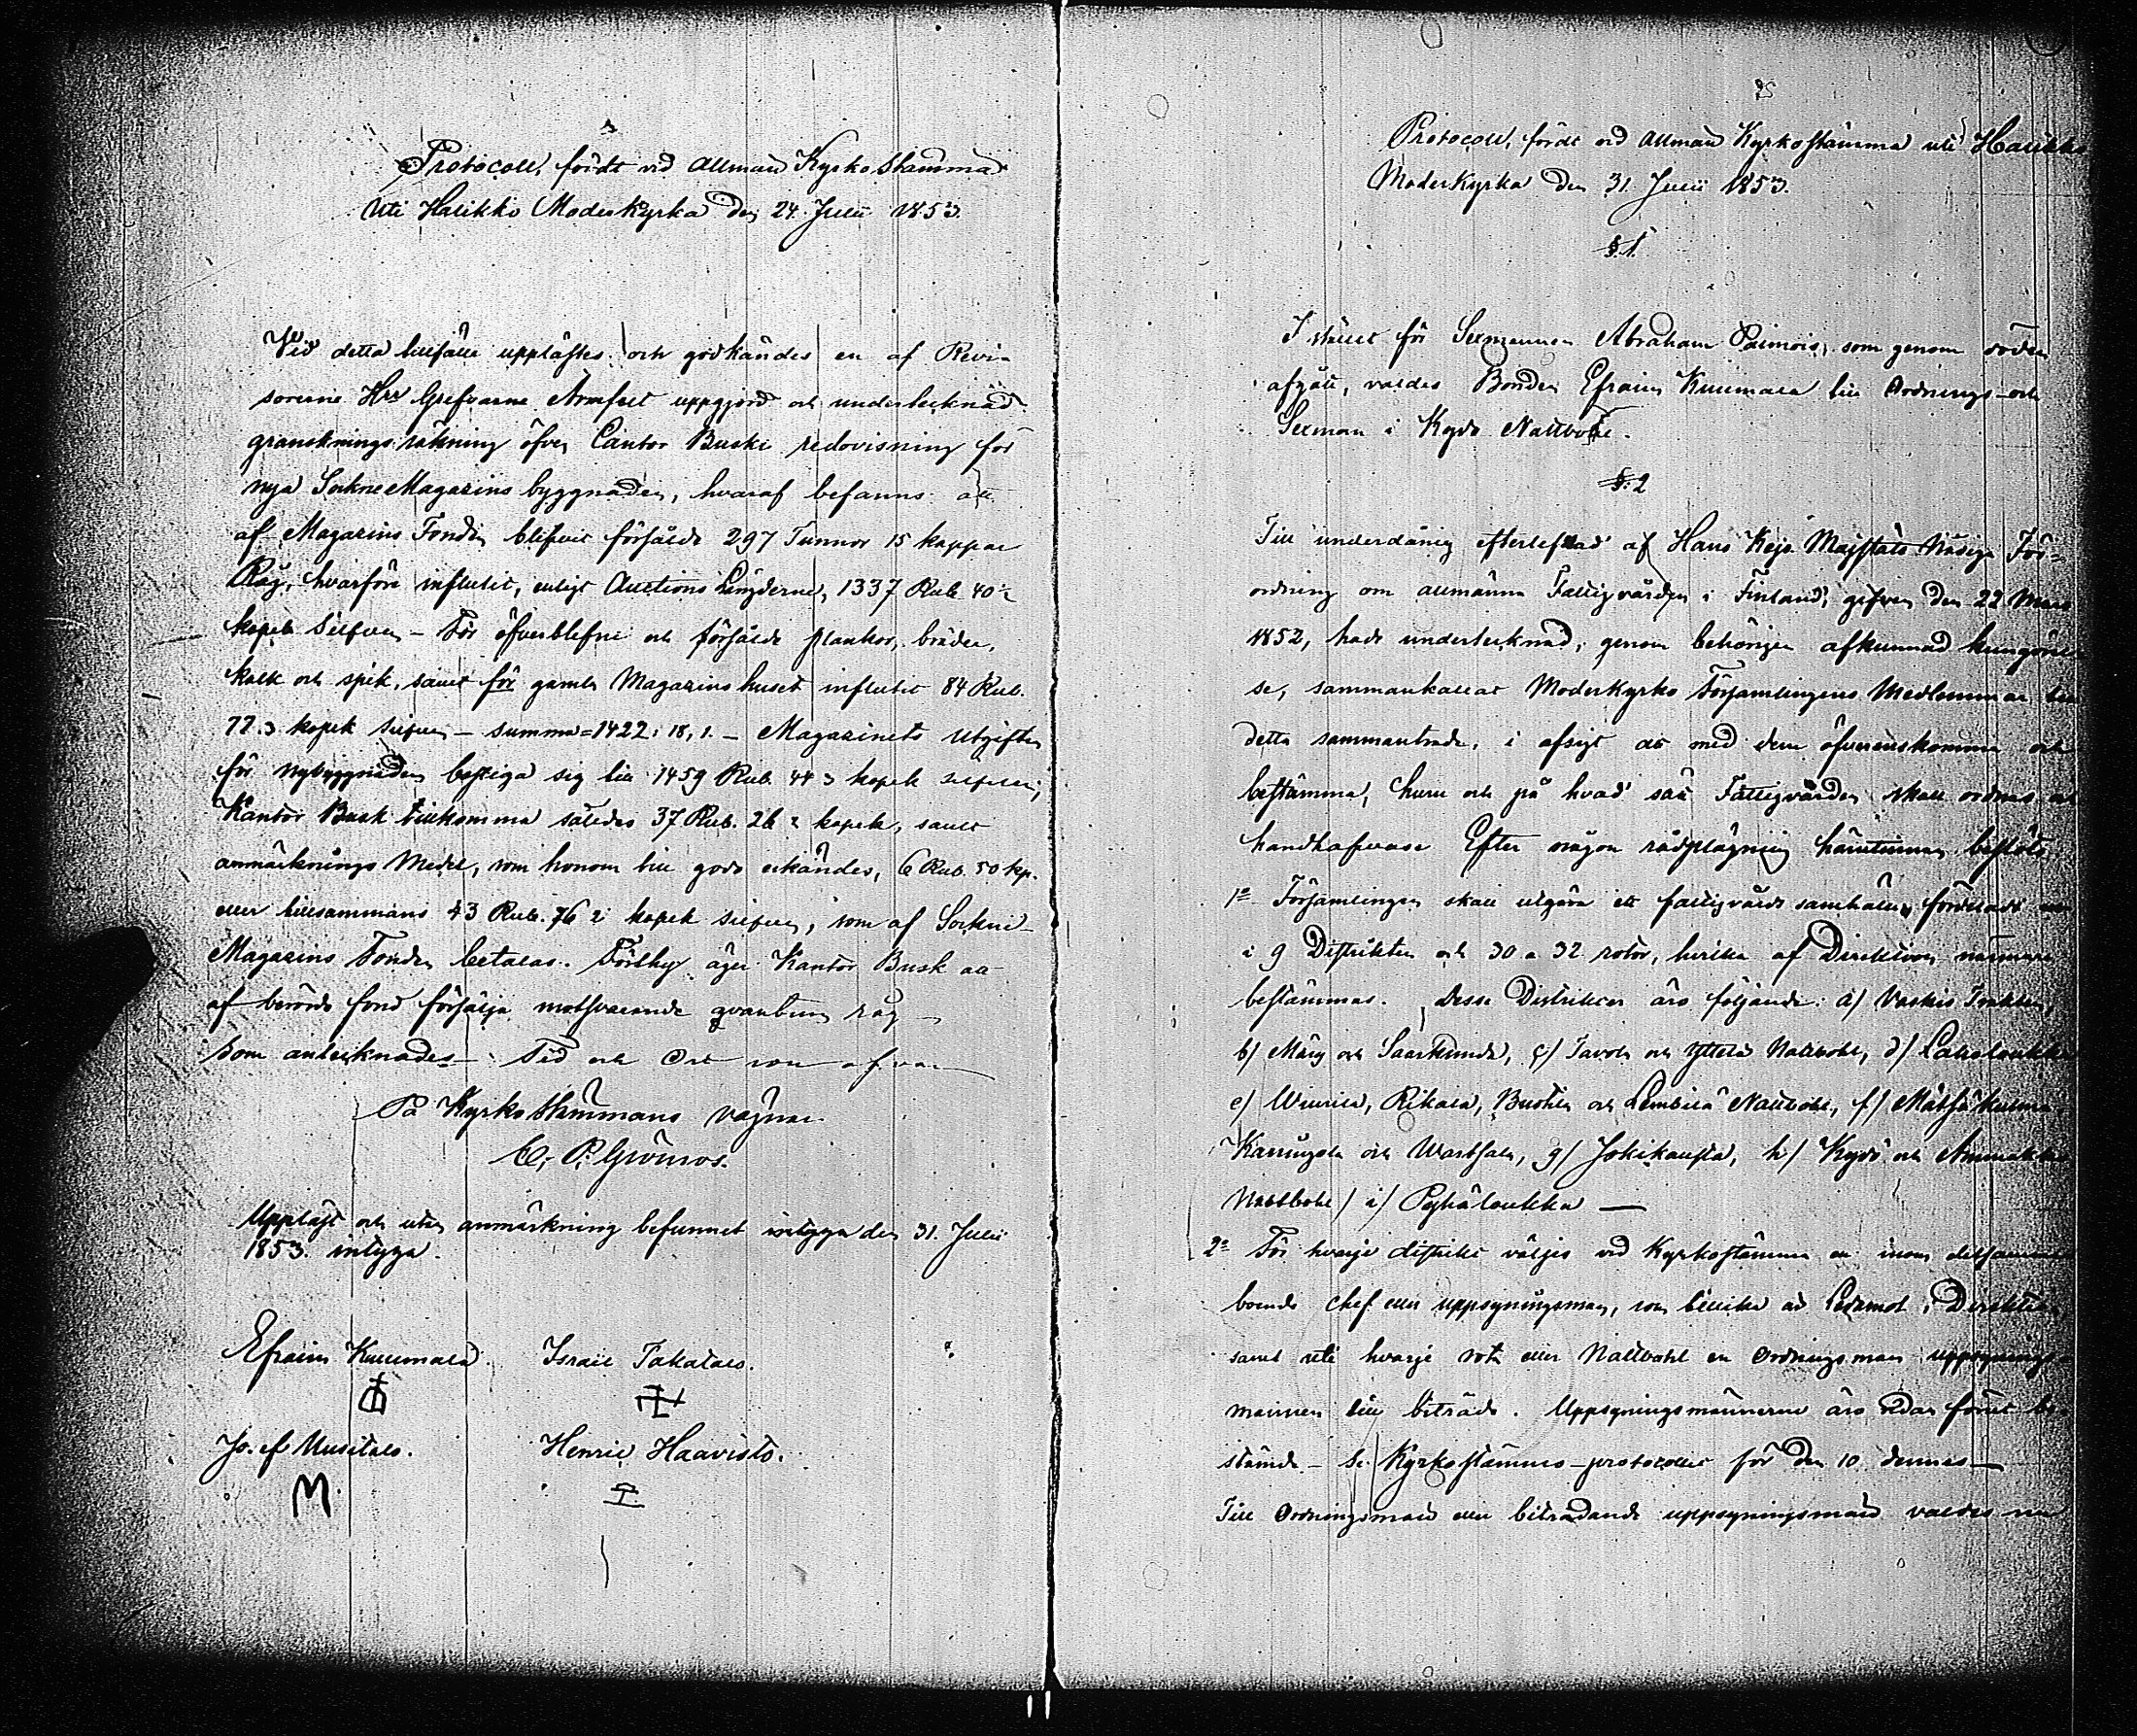 Protocoll, fördt vid Allmän Kyrkostämma
uti Halikko Moderkyrka den 24 Julii 1853.
Vid detta tillfälle upplästes och godkändes en af Revi-
sorerne Hrr Grefvarne Armfelt uppgjord och undertecknad
gransknings räkning öfver Cantor Busks redovisning för
nya Sockne Magasins byggnaden, hvaraf befanns att
af Magasins Fonden blifvit försålde 297 Tunnor 15 kappar
Råg, hvarföre influtit, enligt Auctions Längderne, 1337 Rub 40
kopek Silfver – För öfverblefne och försålde plankor, bräder,
kalk och spik, samt för gamla Magasins huset influtit 84 Rub.
77.3 kopek silfver – summa = 1422, 18, 1. – Magasinets utgifter
för nybyggnaden bestiga sig till 1459 Rub. 44 3 kopek silfver,
Kantor Busk tillkomma således 37 Rub. 26 2 kopek, samt
anmärknings Medel, som honom till godo erkändes, 6 Rub. 50 kp.
eller tillsammans 43 Rub. 76 2 kopek silfver, som af Sockne-
Magasins Fonden betalas. Förthy äger Kantor Busk att
af berörde fond försälja motsvarande qvantum råg –
Som antecknades – Tid och Ort som ofvan
På Kyrkostämmans vägnar
C. P. Grönroos.
Uppläst och utan anmärkning befunnet intyga den 31. Julii
1853. intyga.
Efraim Kuumala. Israel Takatalo.
Josef Uusitalo. Henric Haavisto.
M.
Protocoll, fördt vid Allmän Kyrkostämma uti Halikko
Moderkyrka den 31. Julii 1853.
§. 1.
I stället för Sexmannen Abraham Paimois, som genom döden
afgått, valdes Bonden Efraim Kuumala till Ordnings- och
Sexman i Kydö Nattvobl.
§. 2
Till underdånig efterlefnad af Hans Kejs. Majestäts Nådiga För-
ordning om allmänna Fattigvården i Finland, gifven den 22 Mars
1852, hade undertecknad, genom behörigen afkunnad kungörel
se, sammankallat Moderkyrko Församlingens Medlemmar till
detta sammanträde, i afsigt att med dem öfverenskomma och
bestämma, huru och på hvad sätt Fattigvården skall ordnas och
handhafvas. Efter någon rådplägning härutinnan beslöts
1o Församlingen skall utgöra ett fattigvårds samhälle, fördeladt
i 9 Distrikter och 30 a 32 rotor, hvilka af Direktion närmare
bestämmas. Desse Distrikter äro följande: a)
b) Märy och Saarkunda, c) Tavola och Yttelä Nattvobl, d)
e) Wiurila, Rikala, Bustila och Lembilä Nattvobl, f)
och Wartsala, g) Jokikausta, h) Kydö och
Nattvobl) i) Pyhäloukka —
2o För hvarje distrikt väljes vid Kyrkostämma en inom detsamma
boende chef eller uppsyningsman, som tillika är Ledamot i Direktion
samt uti hvarje rota eller Nattvobl en Ordningsman uppsynings-
mannen till biträde. Uppsyningsmännerne äro redan förut be-
stämde – Se Kyrkostämmo-protocollet för den 10 dennes —
Till Ordningsmän eller biträdande uppsyningsmän valdes nu